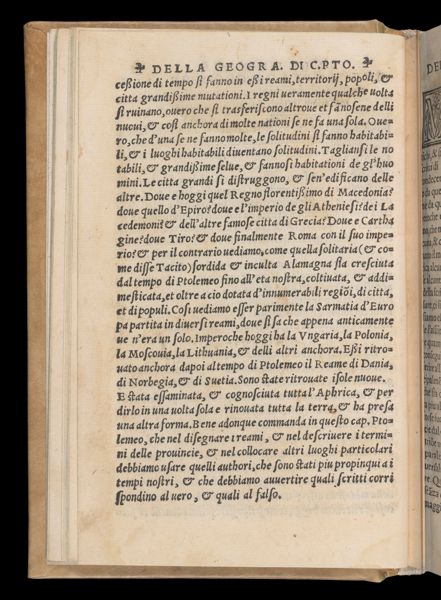 DELLA GEOGRA. DI C.PTO.
ceßione di tempo si fanno in eßi reami, territorij, popoli, &
citta grandißime mutationi. I regni ueramente qualche uolta
si ruinano, ouero che si trasferiscono altroue et fãnosene delli
nuoui, & cosi anchora di molte nationi se ne fa una sola. Oue-
ro, che d'una se ne fanno molte, le solitudini si fanno habitabi-
li, & i luoghi habitabili diuentano solitudini. Tagliansi le no
tabili, & grandißime selue, & fannosi habitationi de gl'huo
mini. Le citta grandi si distruggono, & sen'edificano delle
altre. Doue e hoggi quel Regno florentißimo di Macedonia?
doue quello d'Epiro? doue e l'imperio de gli Atheniesi? dei La
cedemoni? & dell'altre famose citta di Grecia? Doue e Cartha
gine? doue Tiro? & doue finalmente Roma con il suo impe-
rio? & per il contrario uediamo, come quella solitaria (& co-
me disse Tacito) sordida & inculta Alamagna sia cresciuta
dal tempo di Ptolemeo fino all'eta nostra, coltiuata, & addi-
mesticata, et oltre a cio dotata d'innumerabili regiõi, di citta,
et di populi. Cosi uediamo esser parimente la Sarmatia d'Euro
pa partita in diuersi reami, doue si sa che appena anticamente
ue n'era un solo. Imperoche hoggi ha la Vngaria, la Polonia,
la Moscouia, la Lithuania, & delli altri anchora. Eßi ritro-
uato anchora dapoi al tempo di Ptolemeo il Reame di Dania,
di Norbegia, & di Suetia. Sono state ritrouate isole nuoue.
E stata essaminata, & cognosciuta tutta l'Aphrica, & per
dirlo in una uolta sola e rinouata tutta la terra, & ha presa
una altra forma. Bene adonque commanda in questo cap. Pto-
lemeo, che nel disegnare i reami, & nel descriuere i termi-
ni delle prouincie, & nel collocare altri luoghi particolari
debbiamo usare quelli authori, che sono stati piu propinqui a i
tempi nostri, & che debbiamo auuertire quali scritti corri
spondino al uero, & quali al falso.